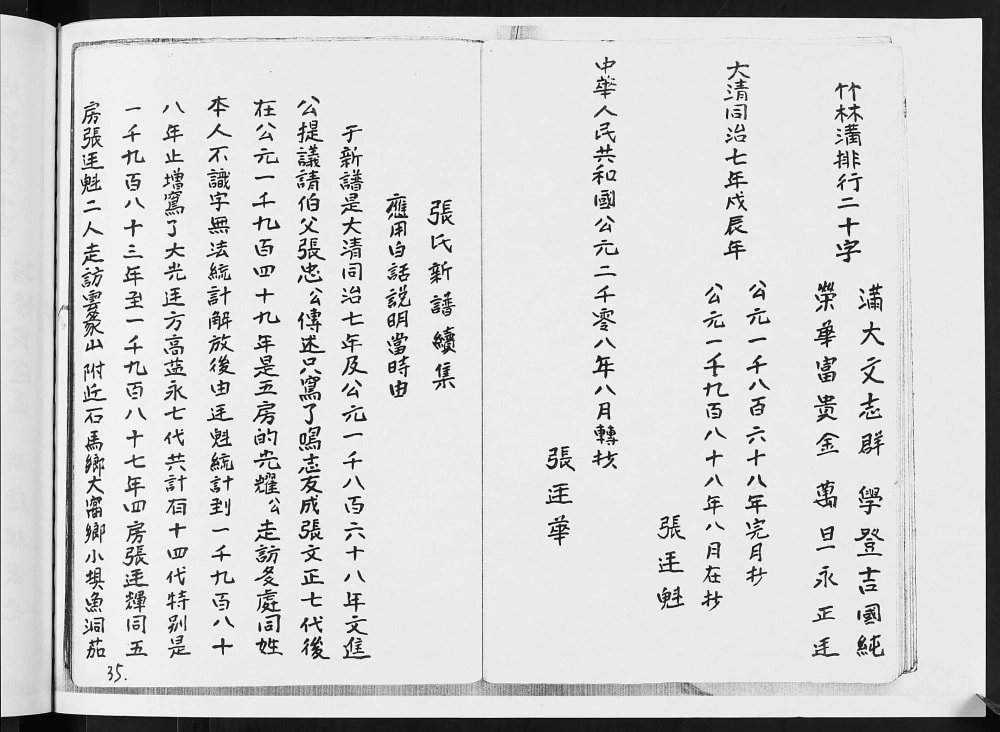 竹林溝排行二十字
滿大文志群 學登吉國純
榮華富貴金 萬旦永正廷
大清同治七年戊辰年
公元一千八百六十八年完月抄
公元一千九百八十八年八月在抄
張廷魁
中華人民共和國公元二千零八年八月轉抄
張廷華
張氏新譜續集
應用白話説明當時由
于新譜是大清同治七年及公元一千八百六十八年文進
公提議請伯父張忠公傳述只寫了鳴志友成張文正七代後
在公元一千九百四十九年是五房的光耀公走訪多處同姓
本人不識字無法統計解放後由廷魁統計到一千九百八十
八年止增寫了大光廷方高益永七代共計有十四代特別是
一千九百八十三年至一千九百八十七年四房張廷輝同五
房張廷魁二人走訪雲蒙山附近石馬鄉大富鄉小垻魚洞茄
35.